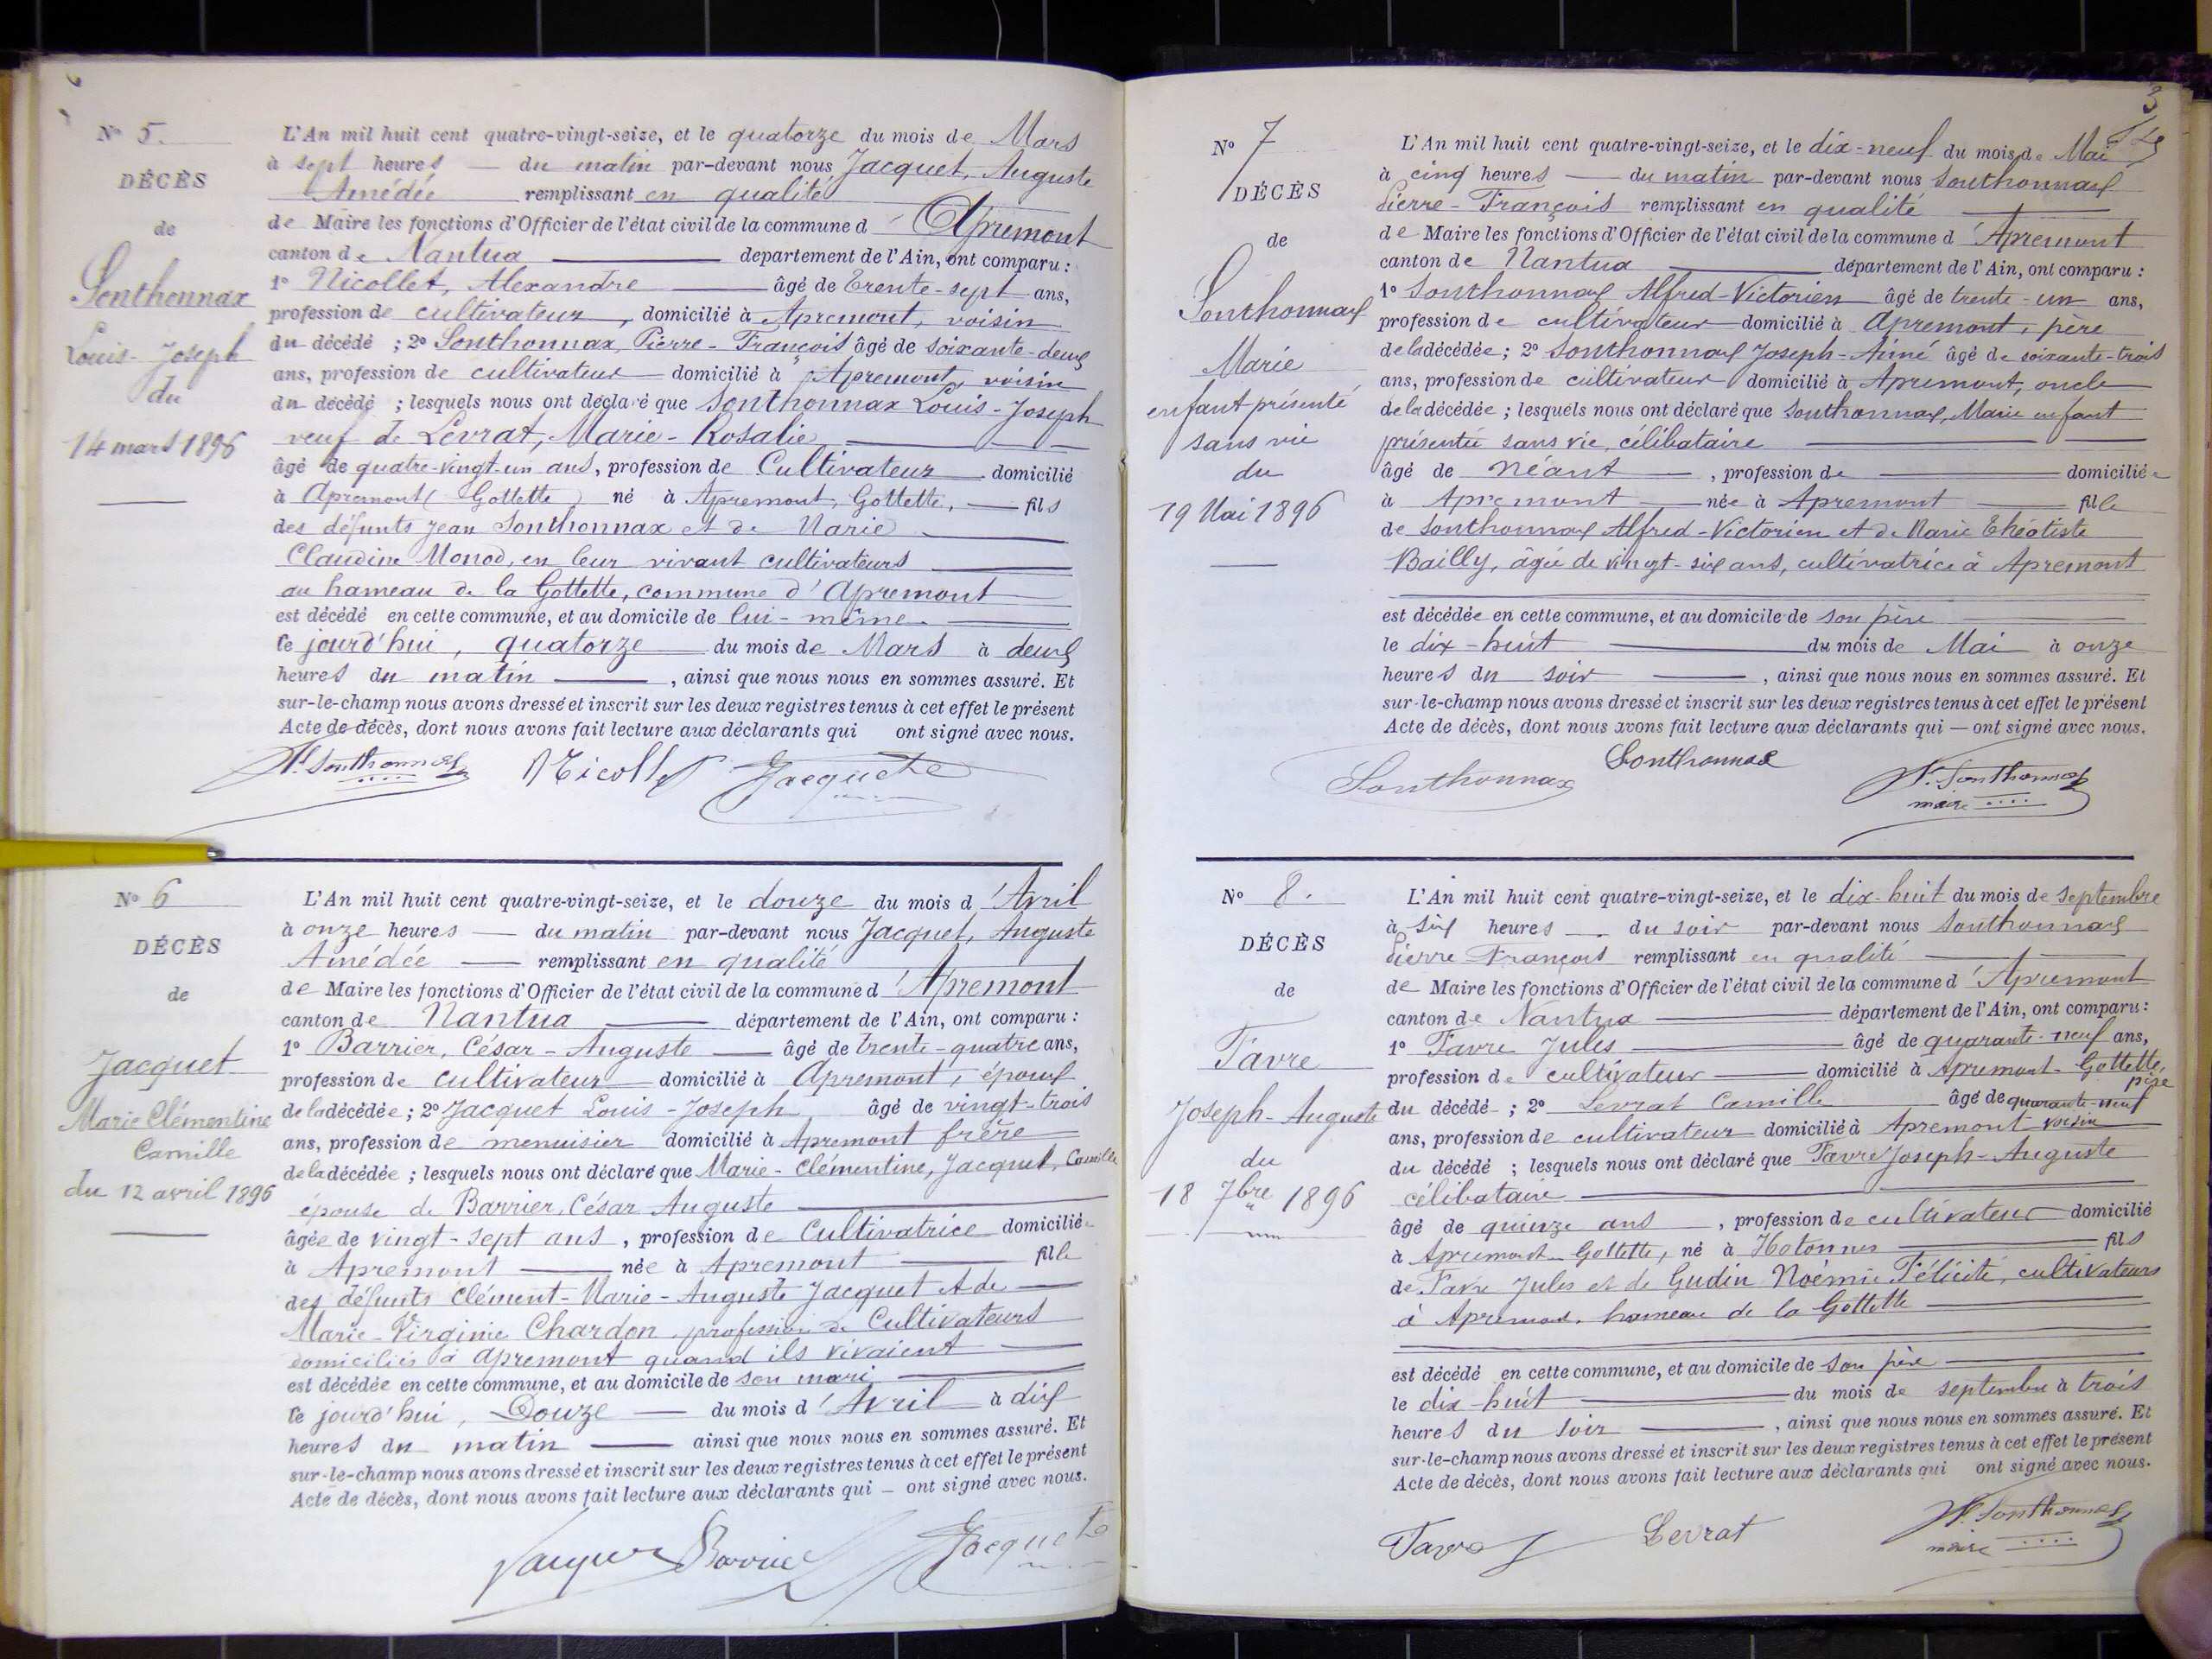 N° 5.
DÉCÈS
de
Sonthonnax
Louis-Joseph
du
14 mars 1896
L'An mil huit cent quatre-vingt-seize, et le quatorze du mois de Mars
à sept heures — du matin par-devant nous Jacquet, Auguste
Amédée remplissant en qualité
de Maire les fonctions d'Officier de l'état civil de la commune d'Apremont
canton de Nantua — departement de l'Ain, ont comparu :
1° Nicollet, Alexandre — âgé de trente-sept ans,
profession de cultivateur, domicilié à Apremont, voisin
du décédé ; 2° Sonthonnax, Pierre-François âgé de soixante-deux
ans, profession de cultivateur domicilié à Apremont, voisin
du décédé ; lesquels nous ont déclaré que Sonthonnax Louis-Joseph
veuf de Levrat, Marie-Rosalie
âgé de quatre-vingt-un ans, profession de Cultivateur domicilié
à Apremont (Gottette) né à Apremont, Gottette, — fils
des défunts Jean Sonthonnax et de Marie
Claudine Monod, en leur vivant cultivateurs
au hameau de la Gottette, commune d'Apremont
est décédé en cette commune, et au domicile de lui-même.
le jourd'hui, quatorze du mois de Mars à deux
heures du matin —, ainsi que nous nous en sommes assuré. Et
sur-le-champ nous avons dressé et inscrit sur les deux registres tenus à cet effet le présent
Acte de décès, dont nous avons fait lecture aux déclarants qui ont signé avec nous.
P. Sonthonnax Nicollet Jacquet
N° 6
DÉCÈS
de
Jacquet
Marie Clémentine
Camille
du 12 avril 1896
L'An mil huit cent quatre-vingt-seize, et le douze du mois d'Avril
à onze heures — du matin par-devant nous Jacquet, Auguste
Amédée — remplissant en qualité
de Maire les fonctions d'Officier de l'état civil de la commune d'Apremont
canton de Nantua — département de l'Ain, ont comparu :
1° Barrier, César-Auguste — âgé de trente-quatre ans,
profession de cultivateur domicilié à Apremont, époux
de la décédée ; 2° Jacquet Louis-Joseph, âgé de vingt-trois
ans, profession de menuisier domicilié à Apremont frère
de la décédée ; lesquels nous ont déclaré que Marie-Clémentine, Jacquet, Camille
épouse de Barrier, César Auguste
âgée de vingt-sept ans, profession de Cultivatrice domiciliée
à Apremont — née à Apremont — fille
des défunts Clément-Marie-Auguste Jacquet et de
Marie-Virginie Chardon, profession de Cultivateurs
domiciliés à Apremont quand ils vivaient
est décédée en cette commune, et au domicile de son mari
le jourd'hui, Douze — du mois d'Avril à dix
heures du matin — ainsi que nous nous en sommes assuré. Et
sur-le-champ nous avons dressé et inscrit sur les deux registres tenus à cet effet le présent
Acte de décès, dont nous avons fait lecture aux déclarants qui — ont signé avec nous.
Jacquet Barrier Jacquet
3
N° 7
DÉCÈS
de
Sonthonnax
Marie
enfant présenté
sans vie
du
19 Mai 1896
L'An mil huit cent quatre-vingt-seize, et le dix-neuf du mois de Mai
à cinq heures — du matin par-devant nous Sonthonnax
Pierre-François remplissant en qualité
de Maire les fonctions d'Officier de l'état civil de la commune d'Apremont
canton de Nantua — département de l'Ain, ont comparu :
1° Sonthonnax Alfred-Victorien âgé de trente-un ans,
profession de cultivateur domicilié à Apremont, père
de la décédée ; 2° Sonthonnax Joseph-Aimé âgé de soixante-trois
ans, profession de cultivateur domicilié à Apremont, oncle
de la décédée ; lesquels nous ont déclaré que Sonthonnax, Marie enfant
présentée sans vie, célibataire
âgé de néant —, profession de — domiciliée
à Apremont — née à Apremont — fille
de Sonthonnax Alfred-Victorien et de Marie Théotiste
Bailly, âgée de vingt-six ans, cultivatrice à Apremont
est décédée en cette commune, et au domicile de son père
le dix-huit — du mois de Mai à onze
heures du soir —, ainsi que nous nous en sommes assuré. Et
sur-le-champ nous avons dressé et inscrit sur les deux registres tenus à cet effet le présent
Acte de décès, dont nous avons fait lecture aux déclarants qui — ont signé avec nous.
Sonthonnax Sonthonnax P. Sonthonnax
maire
N° 8.
DÉCÈS
de
Favre
Joseph-Auguste
du
18 7bre 1896
L'An mil huit cent quatre-vingt-seize, et le dix-huit du mois de septembre
à six heures — du soir par-devant nous Sonthonnax
Pierre François remplissant en qualité
de Maire les fonctions d'Officier de l'état civil de la commune d'Apremont
canton de Nantua — département de l'Ain, ont comparu :
1° Favre Jules — âgé de quarante-neuf ans,
profession de cultivateur — domicilié à Apremont-Gottette, père
du décédé ; 2° Levrat Camille âgé de quarante-neuf
ans, profession de cultivateur domicilié à Apremont voisin
du décédé ; lesquels nous ont déclaré que Favre Joseph-Auguste
célibataire
âgé de quinze ans, profession de cultivateur domicilié
à Apremont Gottette, né à Hotonnes — fils
de Favre Jules et de Gudin Noémie Félicité, cultivateurs
à Apremont, hameau de la Gottette
est décédé en cette commune, et au domicile de son père
le dix-huit — du mois de septembre à trois
heures du soir —, ainsi que nous nous en sommes assuré. Et
sur-le-champ nous avons dressé et inscrit sur les deux registres tenus à cet effet le présent
Acte de décès, dont nous avons fait lecture aux déclarants qui ont signé avec nous.
Favre Levrat P. Sonthonnax
maire